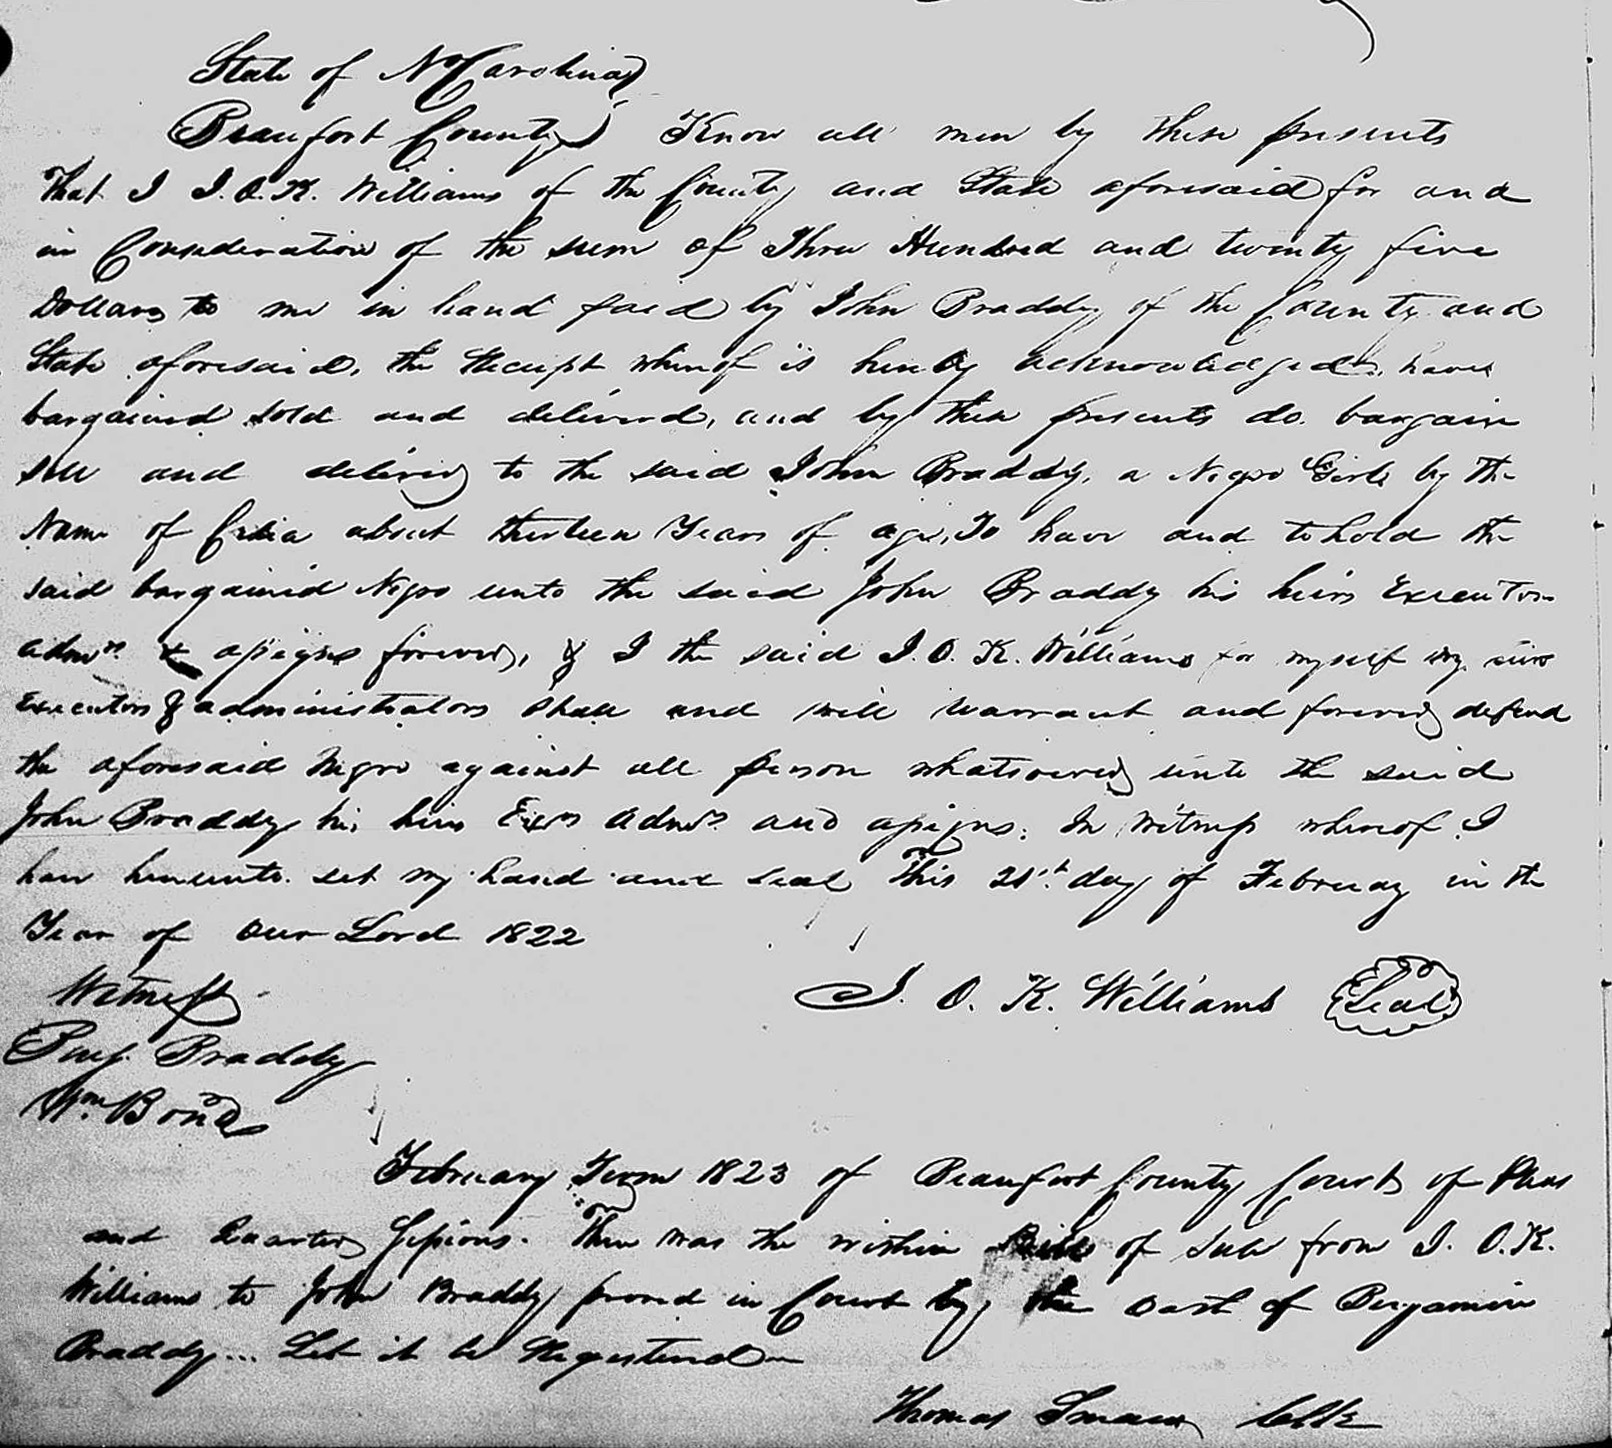 State of No Carolina)
Beaufort County) Know all men by these presents
that I I. O. K. Williams of the County and State aforesaid for and
in Consideration of the sum of Three Hundred and twenty five
Dollars to me in hand paid by John Braddy of the County and
State aforesaid, the Receipt whereof is hereby acknowledged, have
bargained sold and delivered, and by these presents do bargain
sell and deliver to the said John Braddy, a Negro Girl by the
Name of about thirteen Years of age, To have and to hold the
said bargained Negro unto the said John Braddy his heirs Executors
Admrs & assigns forever, & I the said I. O. K. Williams for myself my heirs
Executors & administrators shall and will warrant and forever defend
the aforesaid Negro against all person whatsoever unto the said
John Braddy his heirs Exrs Admrs and assigns. In Witness whereof I
have hereunto set my hand and seal This 21st day of February in the
Year of our Lord 1822
I. O. K. Williams Seal
Witness
Benj. Braddy
Wm Bond
February Term 1823 of Beaufort County Court of Pleas
and Quarter Sessions. Then was the within Bill of Sale from I. O. K.
Williams to John Braddy proved in Court by the oath of Benjamin
Braddy... Let it be Registered
Thomas Smaw Clk